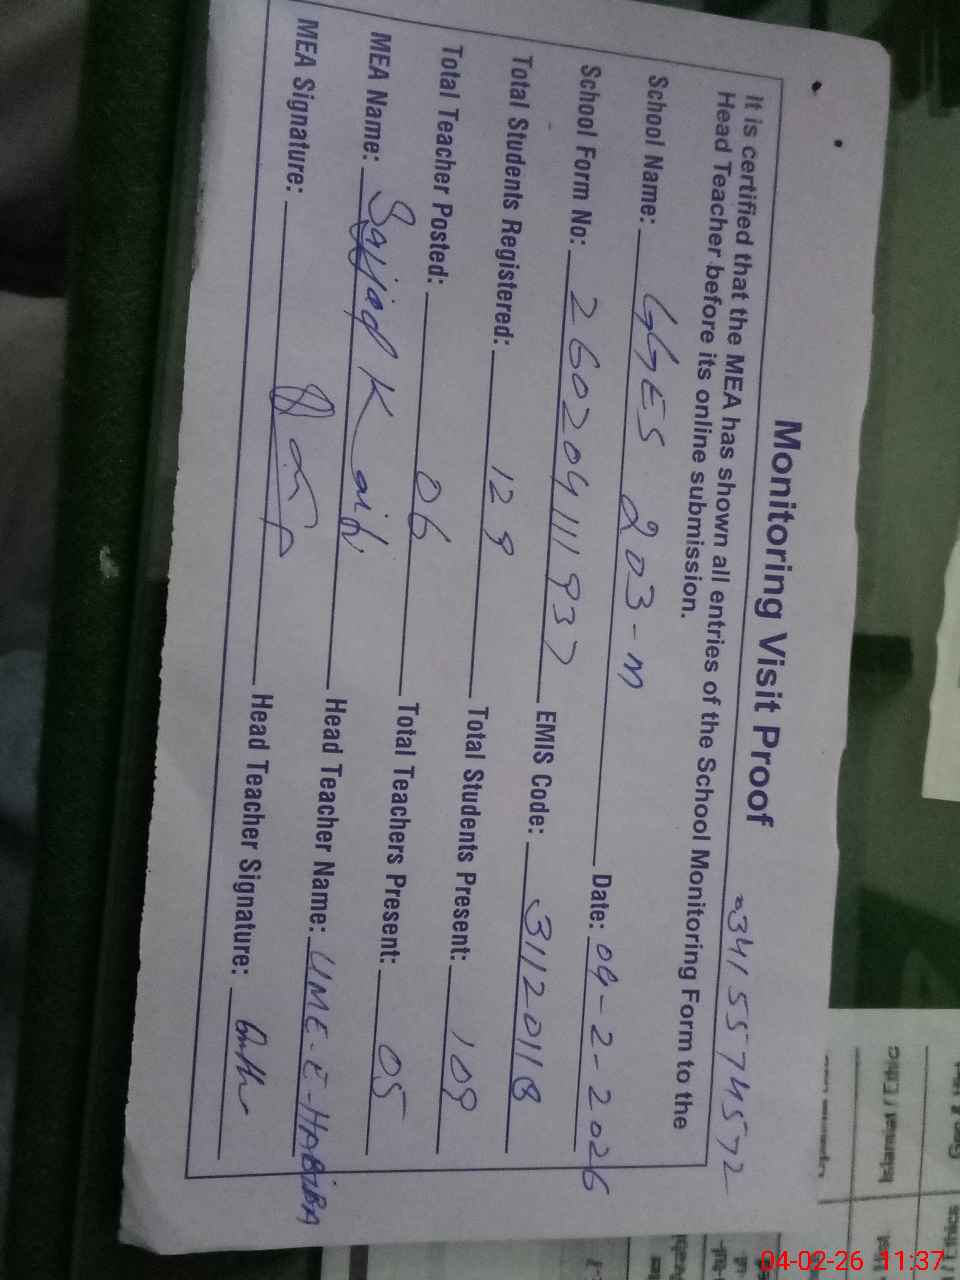 Monitoring Visit Proof 03415574572
It is certified that the MEA has shown all entries of the School Monitoring Form to the
Head Teacher before its online submission.
School Name: GGES 203-M Date: 04-2-2026
School Form No: 260204111937 EMIS Code: 31120118
Total Students Registered: 129 Total Students Present: 109
Total Teacher Posted: 06 Total Teachers Present: 05
MEA Name: Sajjad K Head Teacher Name: UME-E-HABIBA
MEA Signature: Head Teacher Signature:
04-02-26 11:37